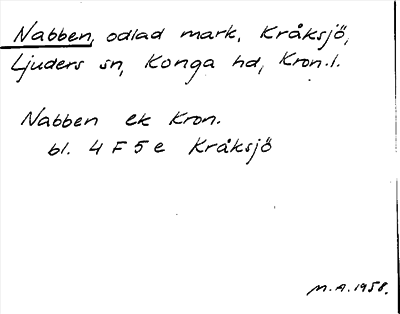 Nabben, odlad mark, Kråksjö,
Ljuders sn, Konga hd, Kron.l.
Nabben ek Kron.
bl. 4 F 5 e Kråksjö
M.A. 1958.